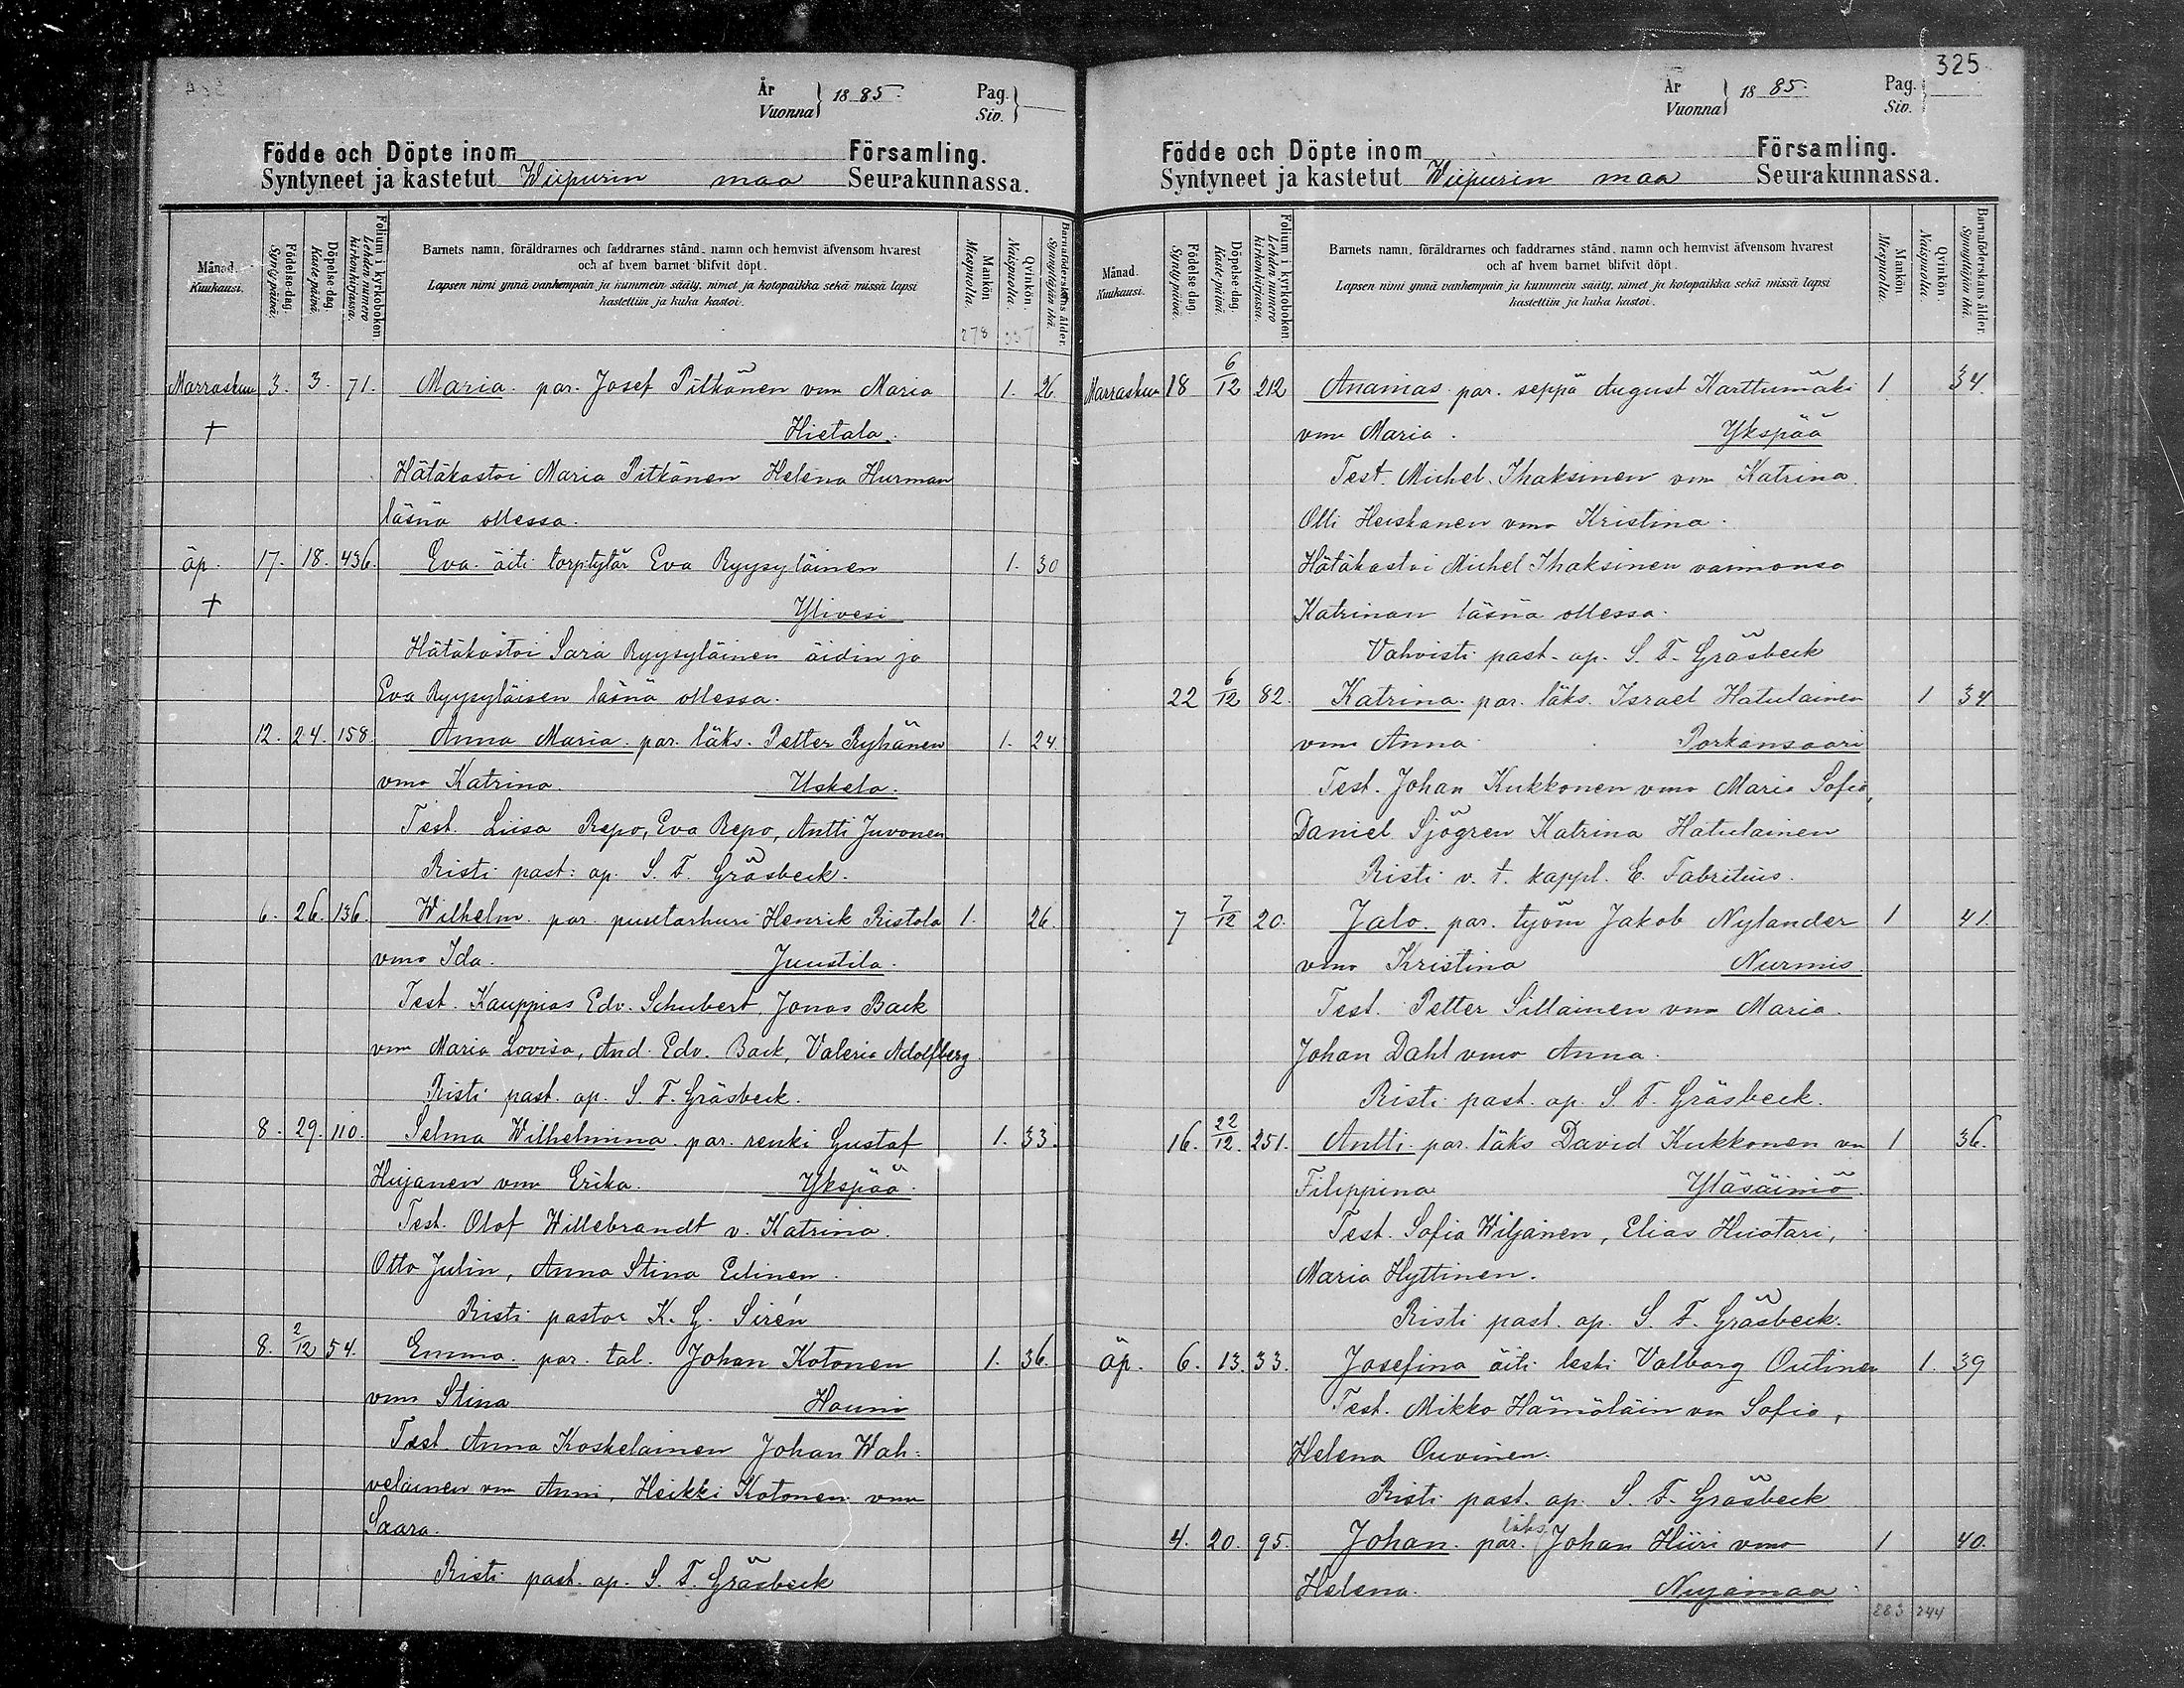 År
Vuonna } 1885.
Pag.
Siv. }
Födde och Döpte inom Församling.
Syntyneet ja kastetut Wiipurin maa Seurakunnassa.
Månad.
Kuukausi.
Födelse-dag.
Syntypäivä.
Döpelse-dag.
Kastepäivä.
Folium i kyrkoboken.
Lehden numero
kirkonkirjassa.
Barnets namn, föräldrarnes och faddrarnes stånd, namn och hemvist äfvensom hvarest
och af hvem barnet blifvit döpt.
Lapsen nimi ynnä vanhempain ja kummein sääty, nimet ja kotopaikka sekä missä lapsi
kastettiin ja kuka kastoi.
Mankön.
Miespuolia.
Qvinkön.
Naispuolia.
Barnaföderskans ålder.
Synnyttäjän ikä.
278 337
Marraskuu 3. 3. 71. Maria. par. Josef Pitkänen vmo Maria 1. 26.
† Hietala.
Hätäkastoi Maria Pitkänen Helena Hurman
läsnä ollessa.
äp. 17. 18. 436. Eva. äiti torp.tytär Eva Ryysyläinen 1. 30
† Ylivesi
Hätäkastoi Sara Ryysyläinen äidin ja
Eva Ryysyläisen läsnä ollessa.
12. 24. 158. Anna Maria. par. läks. Petter Ryhänen 1. 24.
vmo Katrina. Uskela.
Test. Liisa Repo, Eva Repo, Antti Juvonen
Risti past: ap. S. F. Gräsbeck.
6. 26. 136. Wilhelm. par. puutarhuri Henrik Ristola 1. 26.
vmo Ida. Juustila.
Test. Kauppias Edv. Schubert, Jonas Back
vmo Maria Lovisa, And. Edv. Back, Valeria Adolfberg
Risti past. ap. S. F. Gräsbeck.
8. 29. 110. Selma Wilhelmina. par. renki Gustaf 1. 33.
Hujanen vmo Erika. Ykspää.
Test. Olof Willebrandt v. Katrina.
Otto Julin, Anna Stina Eilinen.
Risti pastor K. G. Sirén
8. 2/12 54. Emma. par. tal. Johan Kotonen 1. 36.
vmo Stina Houni
Test Anna Koskelainen Johan Wah:
velainen vm Anni, Heikki Kotonen vmo
Saara.
Risti past. ap. S. F. Gräsbeck
325
År
Vuonna } 1885.
Pag.
Siv. }
Födde och Döpte inom Församling.
Syntyneet ja kastetut Wiipurin maa Seurakunnassa.
Månad.
Kuukausi.
Födelse-dag.
Syntypäivä.
Döpelse-dag.
Kastepäivä.
Folium i kyrkoboken.
Lehden numero
kirkonkirjassa.
Barnets namn, föräldrarnes och faddrarnes stånd, namn och hemvist äfvensom hvarest
och af hvem barnet blifvit döpt.
Lapsen nimi ynnä vanhempain ja kummein sääty, nimet ja kotopaikka sekä missä lapsi
kastettiin ja kuka kastoi.
Mankön.
Miespuolia.
Qvinkön.
Naispuolia.
Barnaföderskans ålder.
Synnyttäjän ikä.
Marraskuu 18 6/12 212 Ananias. par. seppä August Karttumäki 1 34.
vmo Maria. Ykspää
Test. Michel Ihaksinen vm Katrina.
Olli Heiskanen vmo Kristina.
Hätäkastoi Michel Ihaksinen vaimonsa
Katrinan läsnä ollessa.
Vahvisti past. ap. S. F. Gräsbeck
22 6/12 82. Katrina. par. läks. Israel Hatulainen 1 34
vmo Anna Porkansaari
Test. Johan Kukkonen vmo Maria Sofia,
Daniel Sjögren Katrina Hatulainen
Risti v. t. kappl. E. Fabritius.
7 7/12 20. Jalo. par. työm Jakob Nylander 1 41.
vmo Kristina Nurmis
Test. Petter Sillainen vmo Maria.
Johan Dahl vmo Anna.
Risti past. ap. S. F. Gräsbeck.
16. 22/12. 251. Antti. par. läks David Kukkonen vm 1 36.
Filippina Yläsäiniö
Test. Sofia Wiljanen, Elias Huotari,
Maria Hyttinen.
Risti past. ap. S. F. Gräsbeck.
äp. 6. 13. 33. Josefina äiti leski Valborg Outinen 1. 39
Test. Mikko Hämäläin vm Sofia,
Helena Ouvinen.
Risti past. ap. S. F. Gräsbeck
4. 20. 95. Johan. par. läks. Johan Hiiri vmo 1 40.
Helena. Nuijamaa.
283 344